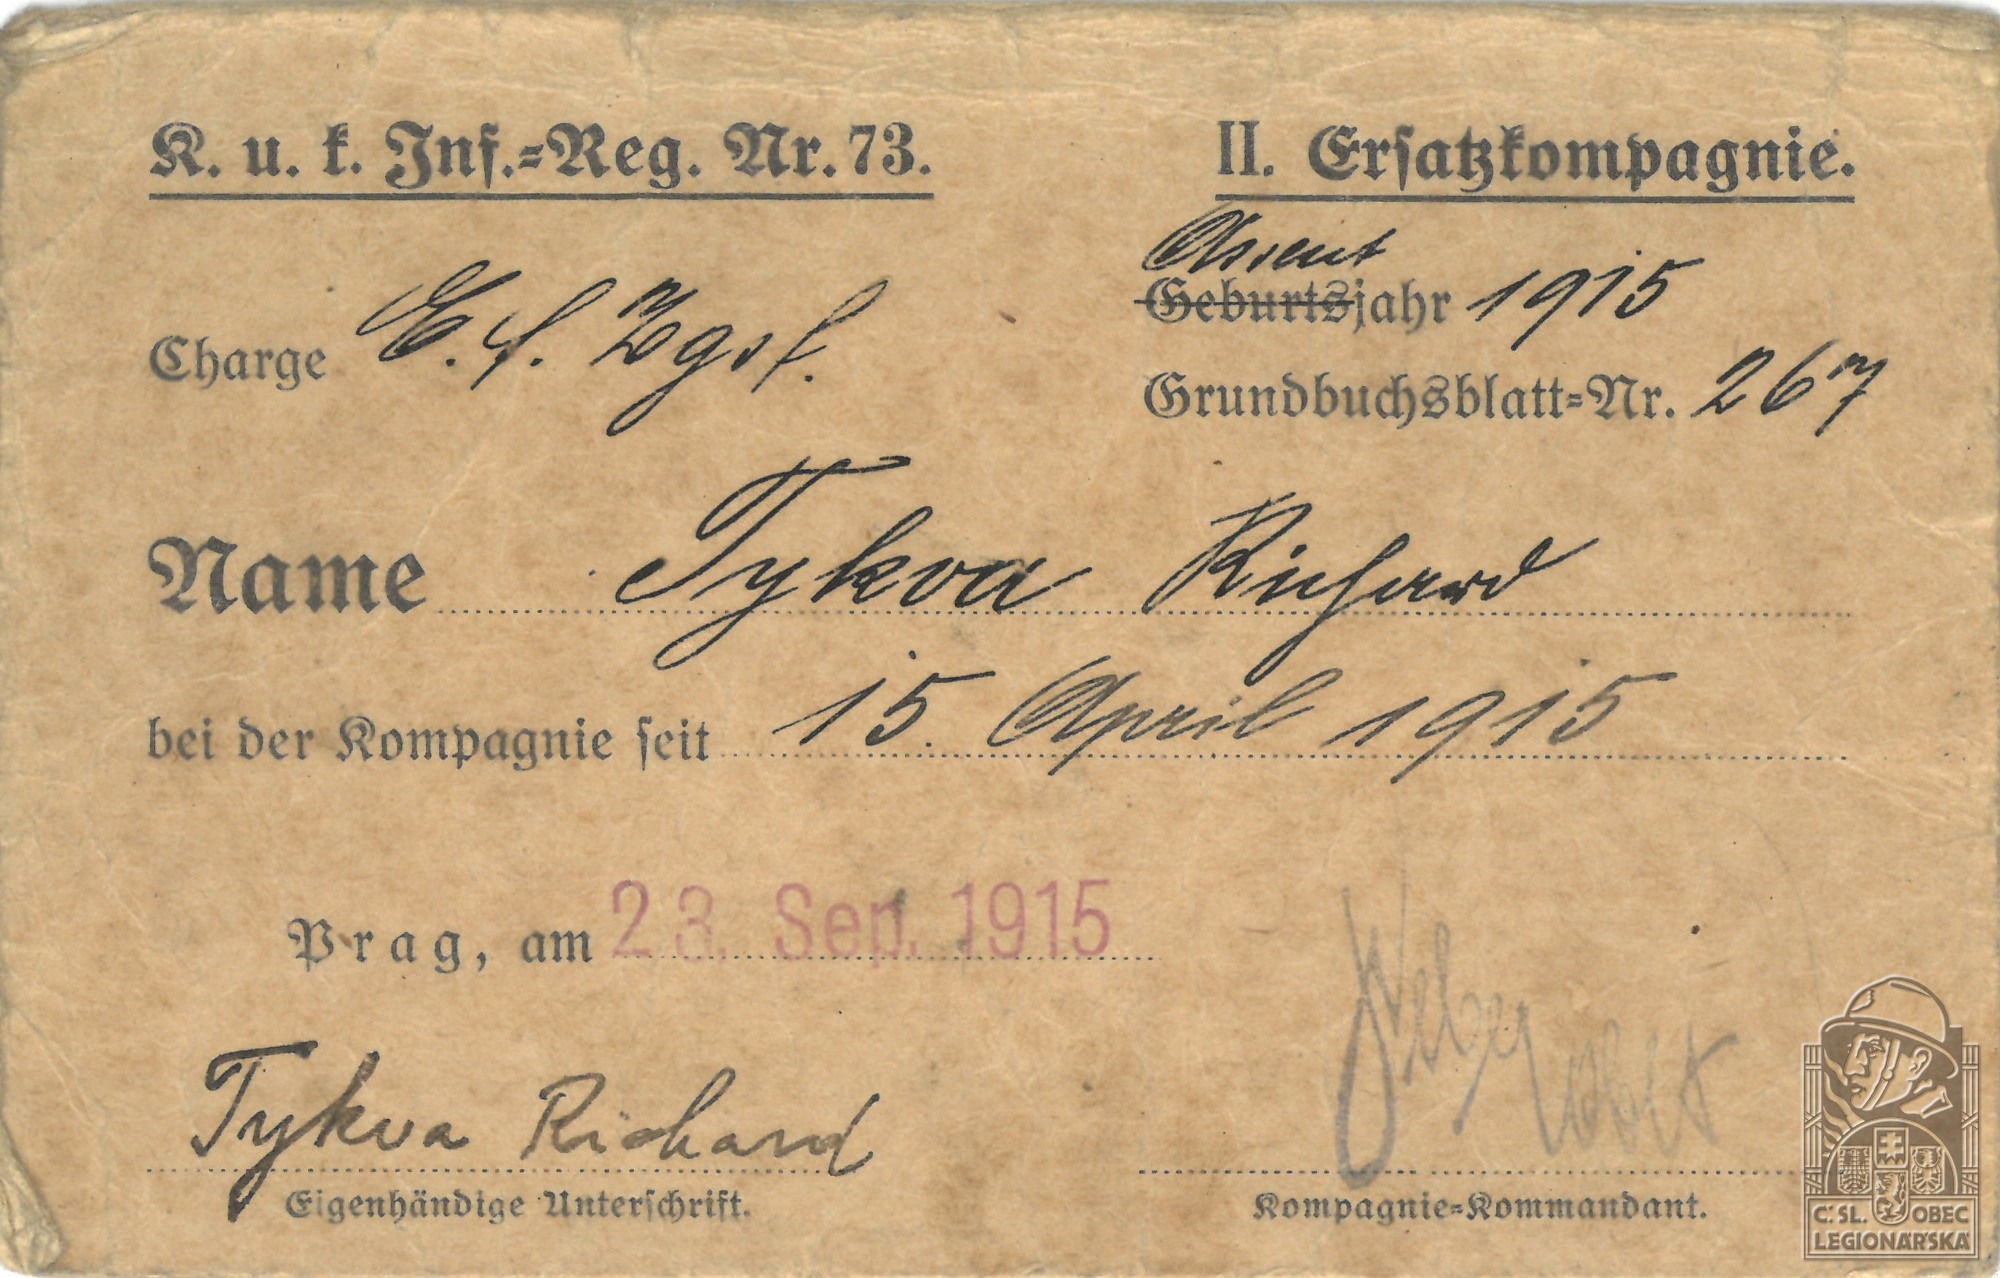 K. u. k. Inf.=Reg. Nr. 73.
II. Ersatzkompagnie.
Charge E. f. Zgsf.
Assent
Geburtsjahr 1915
Grundbuchsblatt=Nr. 267
Name Tykva Richard
bei der Kompagnie seit 15. April 1915
Prag, am 23. Sep. 1915
Tykva Richard
Eigenhändige Unterschrift.
Kompagnie=Kommandant.
Č.SL. OBEC
LEGIONÁŘSKÁ